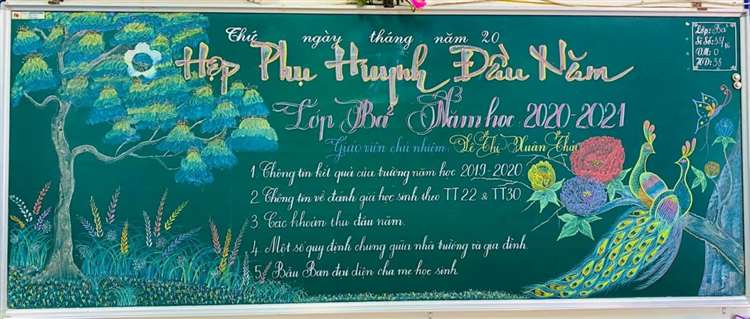 Thứ ngày tháng năm 20
Họp Phụ Huynh Đầu Năm
Lớp Ba² Năm học 2020-2021
Giáo viên chủ nhiệm: Lê Thị Xuân
1. Thông tin kết quả của trường năm học 2019-2020
2. Thông tin về đánh giá học sinh theo TT22 & TT30
3. Các khoản thu đầu năm.
4. Một số quy định chung giữa nhà trường và gia đình.
5. Bầu Ban đại diện cha mẹ học sinh.
Lớp: Ba²
V: 0
HD: 38